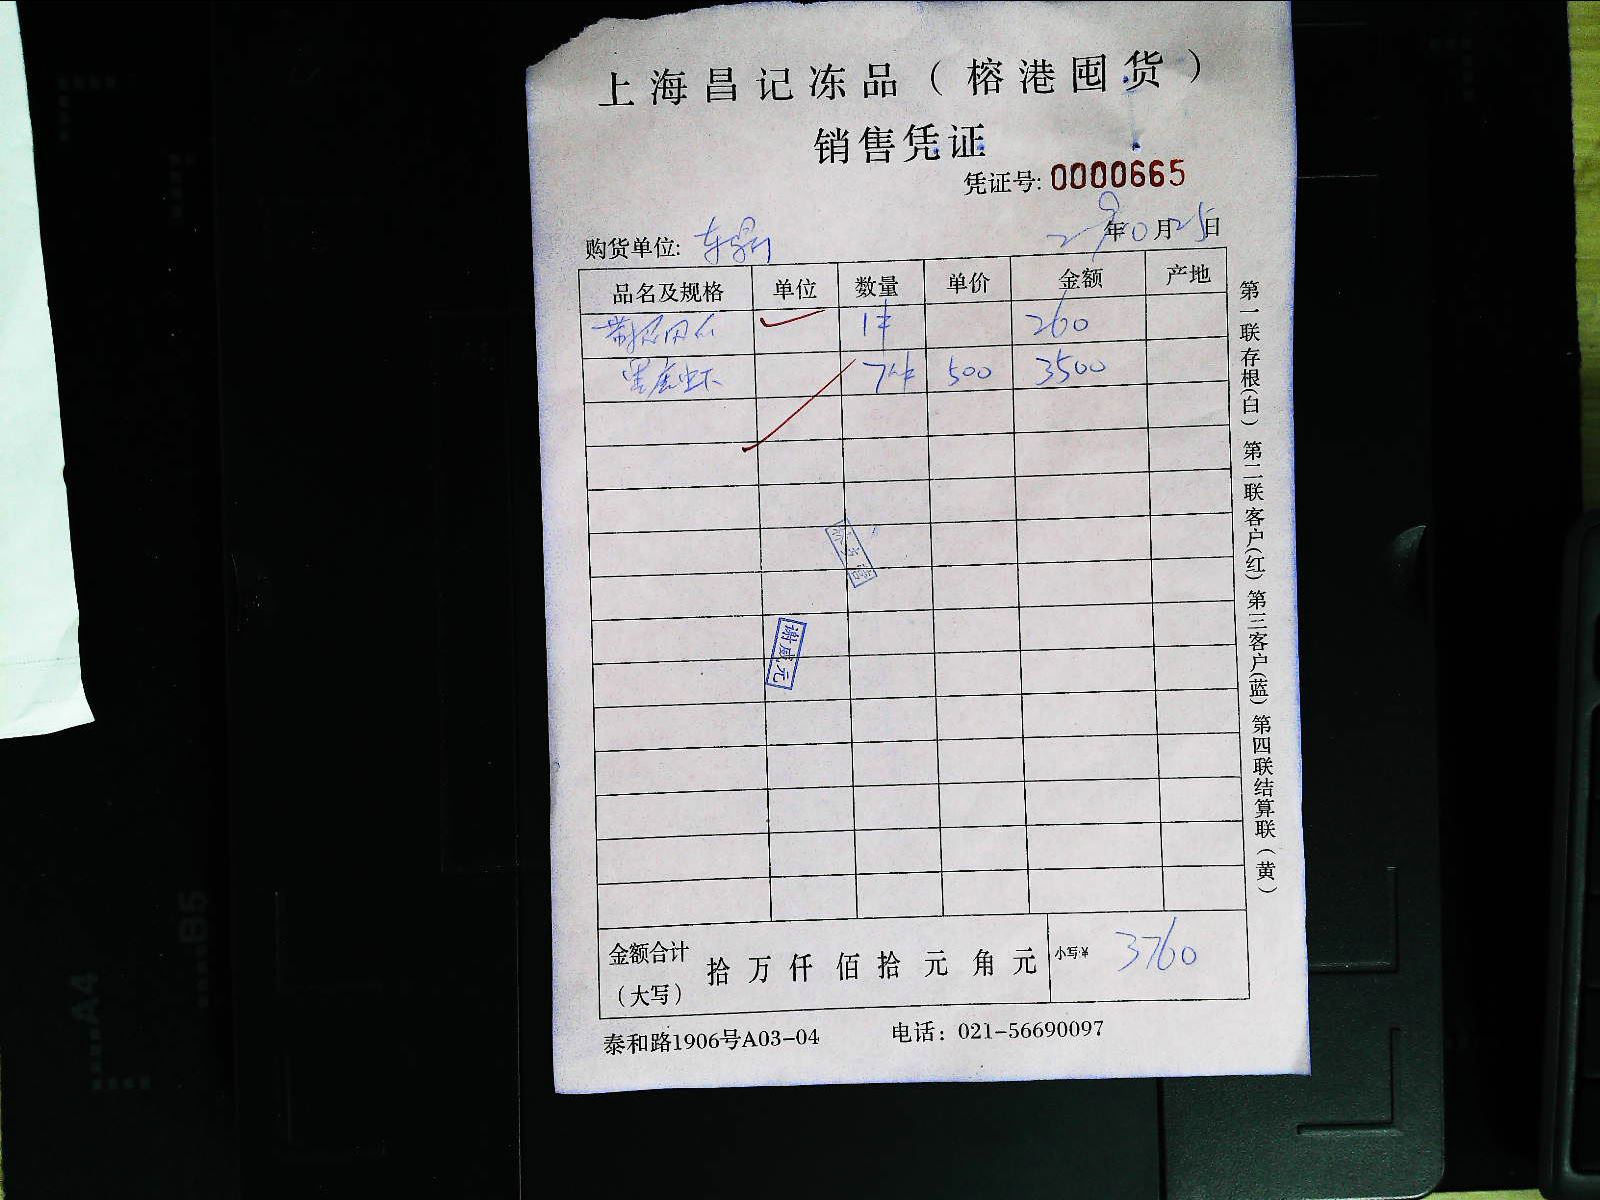 上海昌记冻品（榕港囤货）
销售凭证
凭证号: 0000665
购货单位: 年 月25日
品名及规格 单位 数量 单价 金额 产地
1件 260
虾 7件 500 3500
谢咸元
金额合计（大写） 拾 万 仟 佰 拾 元 角 元 小写¥ 3760
泰和路1906号A03-04 电话：021-56690097
第一联存根(白) 第二联客户(红) 第三客户(蓝) 第四联结算联（黄）
A4
B5